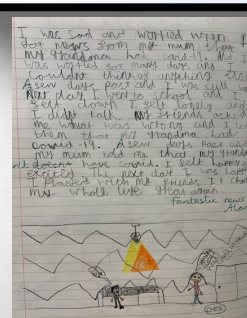 I was sad and worried when I
got news from my mum that
my Grandma had covid-19. And
was worried for many days and I
couldnt think of anything els
A sew days past and I was still wo
Next day I went to school and I
selt down I selt lonely and
I didnt talk. My friends asked
me what was wrong and I
them that my Grandma had
covid-19. A sew days Past and
my mum told me that my Grandm
doesnt have covid. I selt happy
excited. The next day I was happ
I Played with my friends. It cha
my whole life
Fantastic news